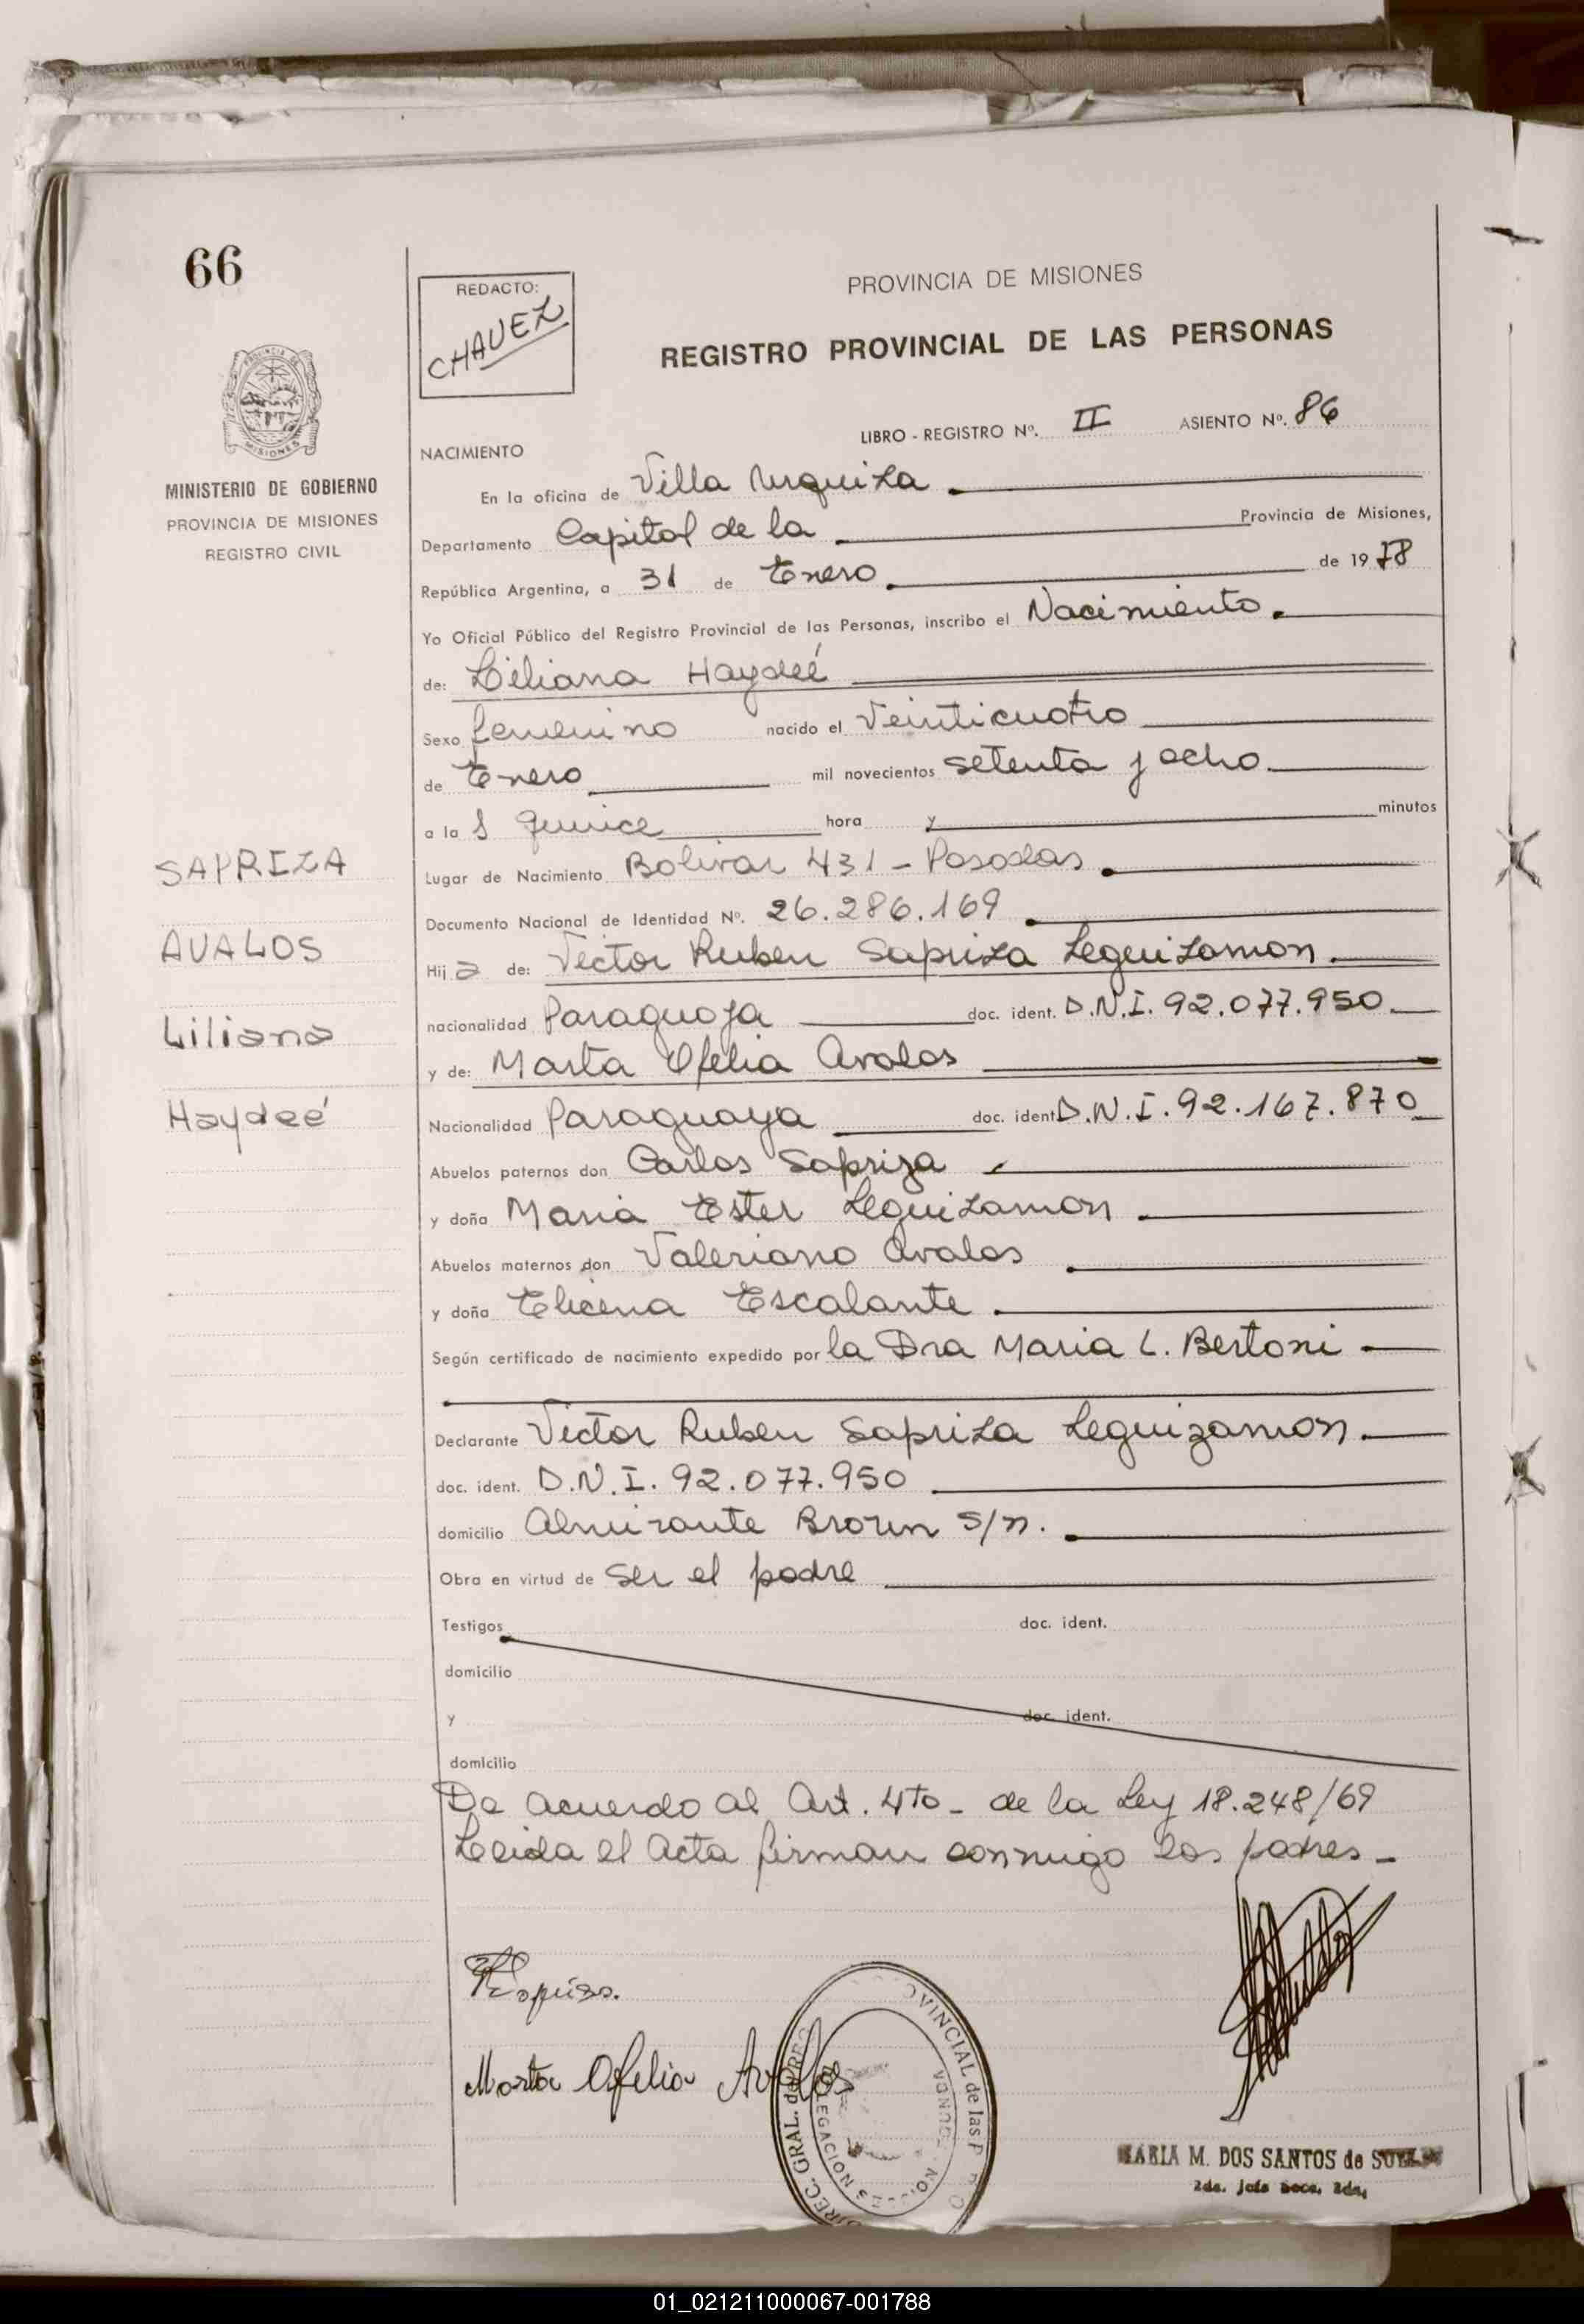 66
REDACTO:
CHAVEZ
PROVINCIA DE MISIONES
REGISTRO PROVINCIAL DE LAS PERSONAS
PROVINCIA DE
MISIONES
MINISTERIO DE GOBIERNO
PROVINCIA DE MISIONES
REGISTRO CIVIL
LIBRO - REGISTRO Nº. II ASIENTO Nº. 86
NACIMIENTO
En la oficina de Villa Urquiza
Departamento Capital de la Provincia de Misiones,
República Argentina, a 31 de Enero de 1978
Yo Oficial Público del Registro Provincial de las Personas, inscribo el Nacimiento.
de: Liliana Haydeé
Sexo femenino nacido el Veinticuatro
de Enero mil novecientos setenta y ocho
a la s quince hora y minutos
Lugar de Nacimiento Bolivar 431 - Posadas
Documento Nacional de Identidad Nº. 26.286.169
Hij a de: Victor Ruben Sapriza Leguizamon.
nacionalidad Paraguaya doc. ident. D.N.I. 92.077.950
y de: Marta Ofelia Avalos
Nacionalidad Paraguaya doc. ident D.N.I. 92.167.870
Abuelos paternos don Carlos Sapriza
y doña Maria Ester Leguizamon
Abuelos maternos don Valeriano Avalos
y doña Elicena Escalante
Según certificado de nacimiento expedido por la Dra Maria L. Bertoni
Declarante Victor Ruben Sapriza Leguizamon.
doc. ident. D.N.I. 92.077.950
domicilio Almirante Brown s/n.
Obra en virtud de ser el padre
Testigos doc. ident.
domicilio
y doc. ident.
domicilio
De acuerdo al Art. 4to - de la Ley 18.248/69
Leida el Acta firman conmigo los padres -
SAPRIZA
AVALOS
Liliana
Haydeé
Marta Ofelia Avalos
DIREC. GRAL. del REG PROVINCIAL de las P
DELEGACION
MARIA M. DOS SANTOS de
2da. Jefa Secc. 2da.
01_021211000067-001788